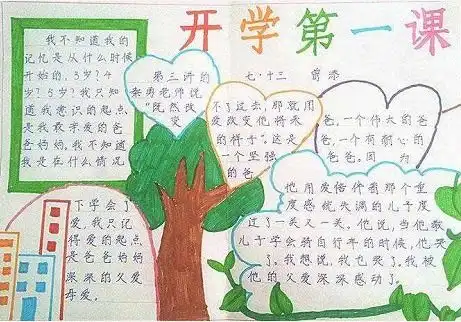 开学第一课
七·十三
我不知道我的
记忆是从什么时候
开始的,3岁?4
岁?5岁?我只知
道我意识的起点
是我敬学爱的爸
爸妈妈,我不知道
我是在什么情况
下学会了
爱,我只记
得爱的起点
是爸爸妈妈
深深的父爱
母爱。
第三讲的
秦勇老师说
"既然改
变
不了过去,那就用
爱改变他将来
的样子"。这是
一个坚强
的爸
爸,一个伟大的爸
爸,一个有耐心的
爸爸。因为
他用爱陪伴着那个重
度感统失调的儿子度
过了一关又一关。他说,当他教
儿子学会骑自行车的时候,他哭
了。我想说,我也哭了,我被
他的父爱深深感动了。